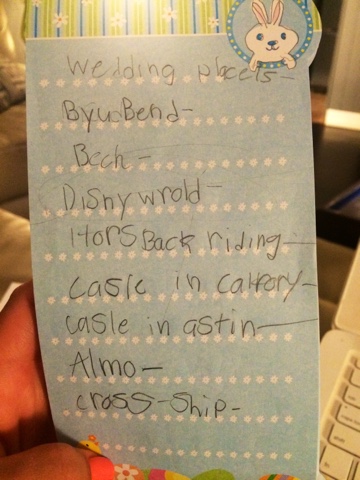 Wedding placets-
ByuBend-
Bech-
Disnywrold-
Hors Back riding-
casle in calfory-
casle in astin-
Almo-
cross-ship-